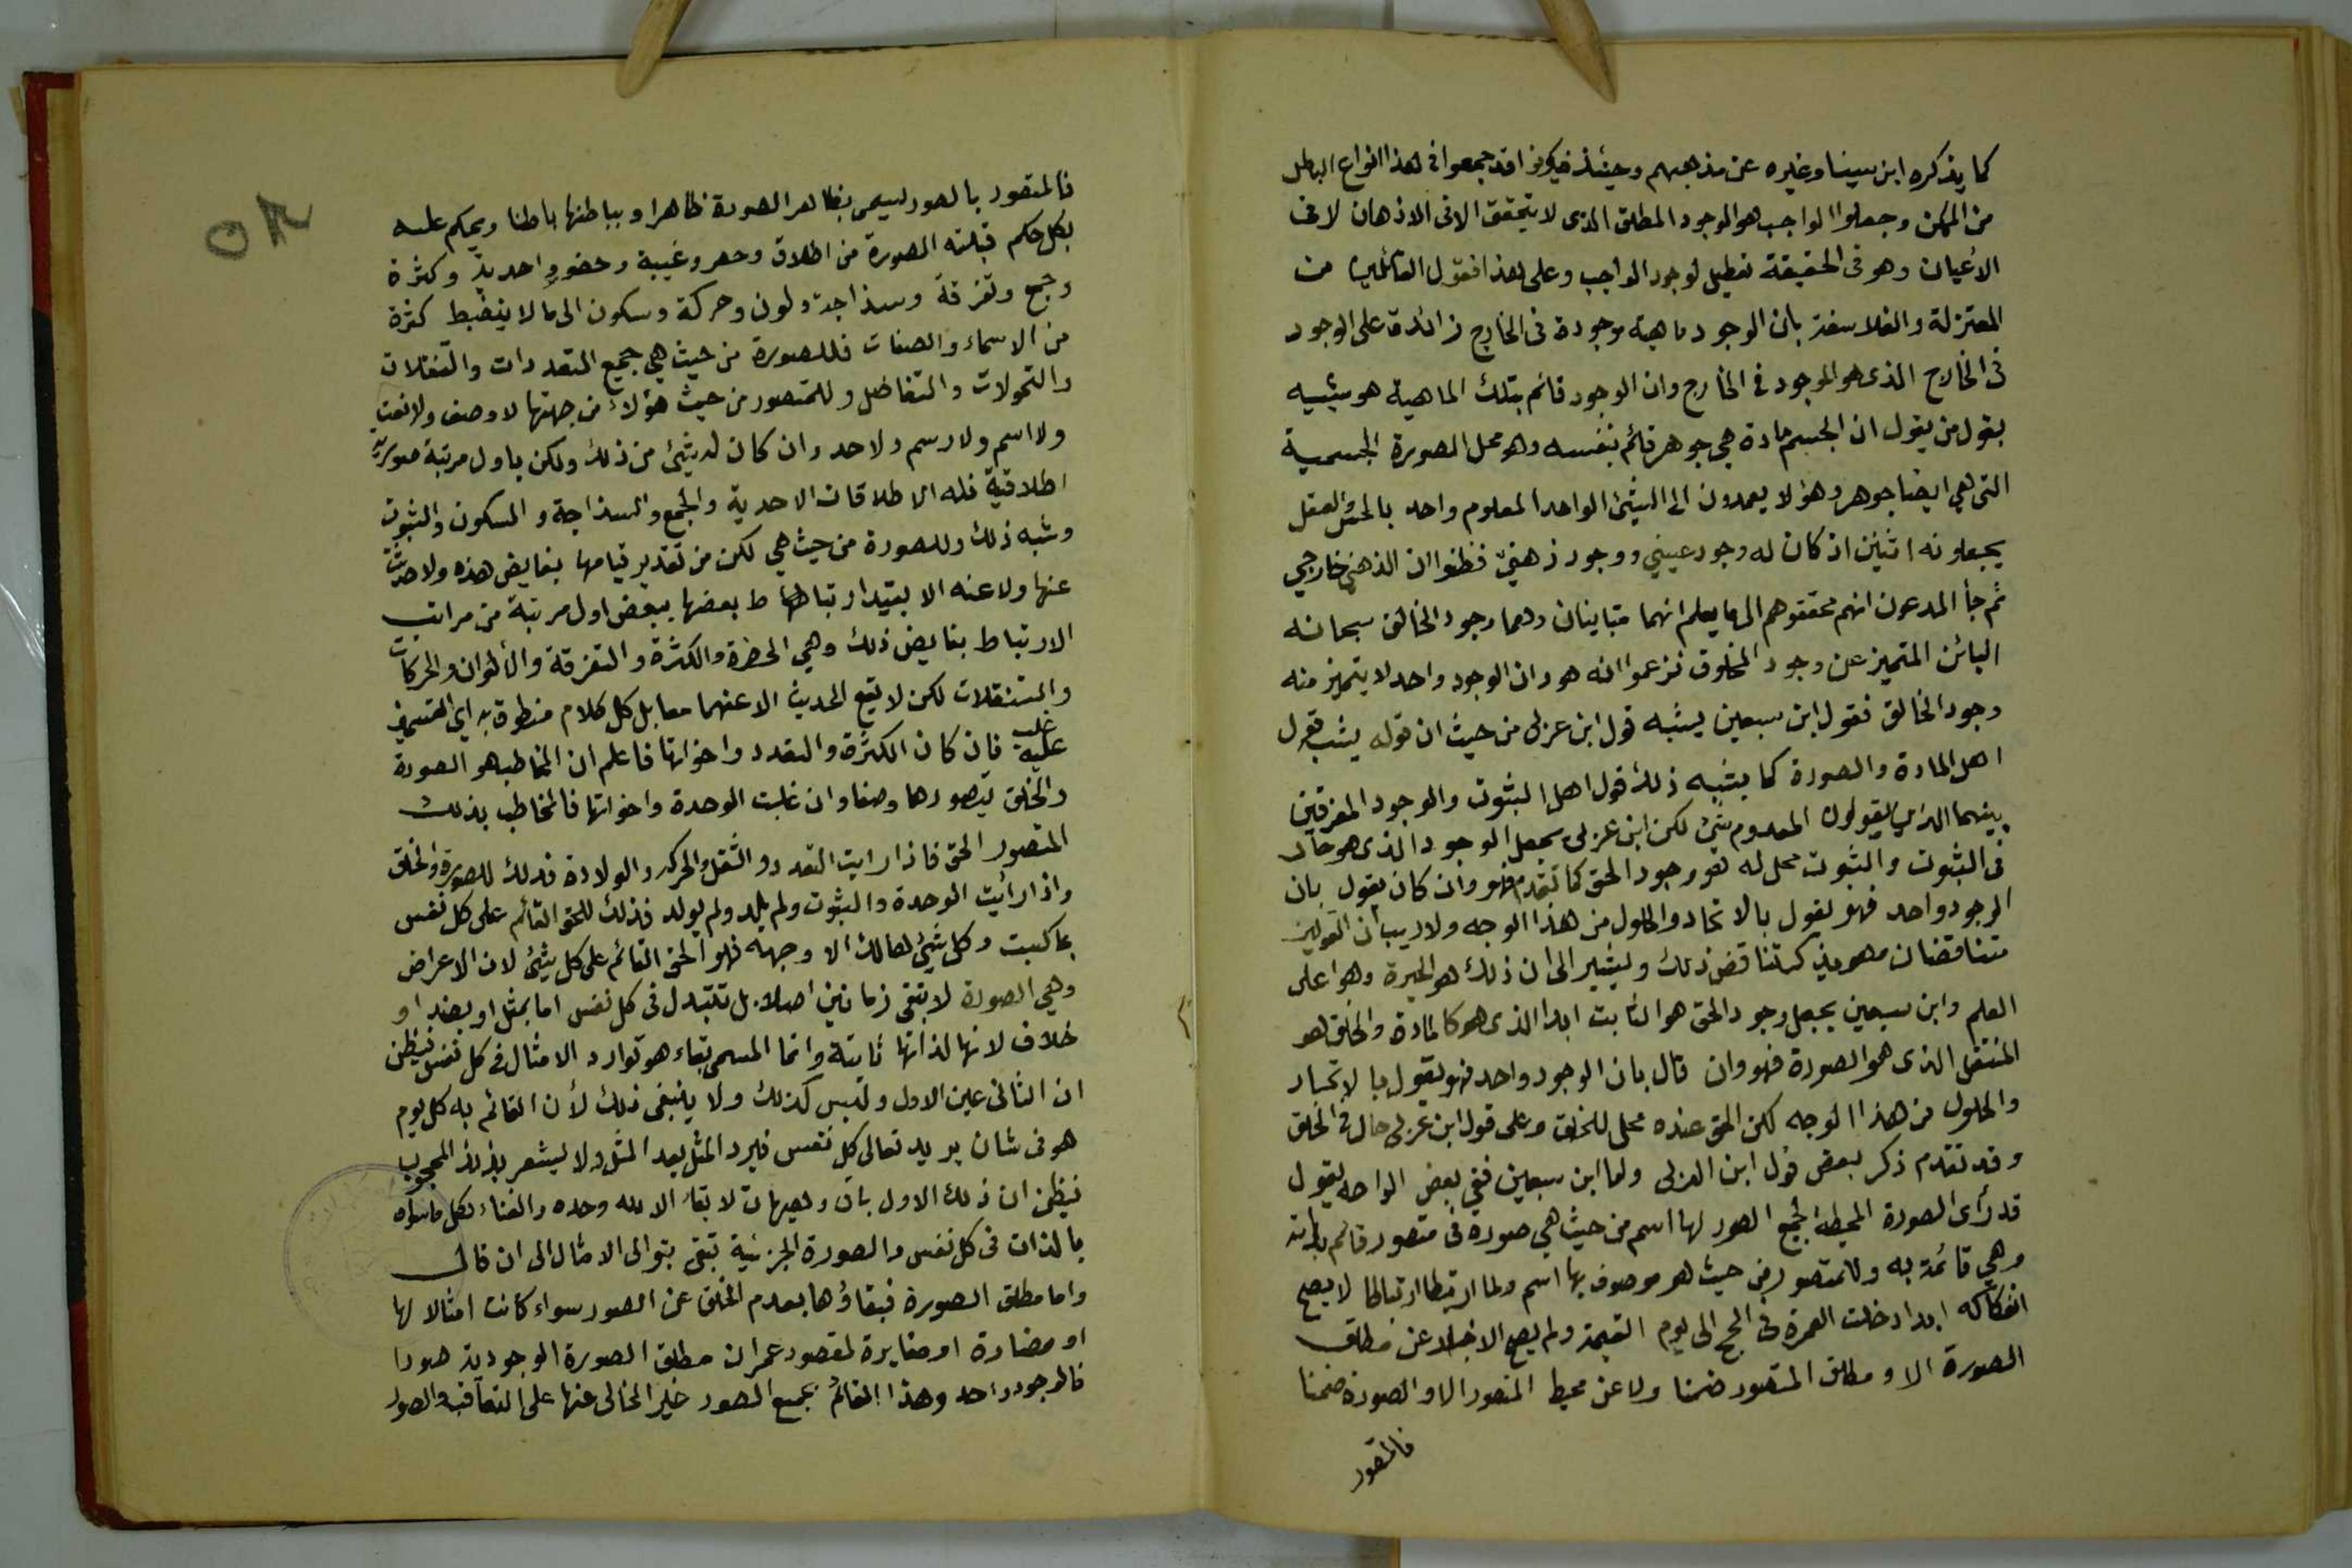 كما يذكره ابن سينا وغيره عن مذهبهم وحينئذ فيكونوا قد جمعوا في هذا انواع الباطل
من الممكن وجعلوا الواجب هو الوجود المطلق الذى لا يتحقق الا فى الاذهان لا فى
الاعيان وهو فى الحقيقة تعطيل لوجود الواجب وعلى هذا فقول القائلين من
المعتزلة والفلاسفة بان الوجود ماهية موجودة فى الخارج زائدة على الوجود
فى الخارج الذى هو الموجود فى الخارج وان الوجود قائم بتلك الماهية هو شبيه
بقول من يقول ان الجسم مادة هي جوهر قائم بنفسه وهو محل الصورة الجسمية
التى هي ايضا جوهر وهؤلا يعمدون الى الشئ الواحد المعلوم واحد بالحس والعقل
يجعلونه اثنين اذ كان له وجود عيني ووجود ذهني فظنوا ان الذهني خارجي
ثم جأ المدعون انهم محققوهم الى ما يعلم انهما متباينان وهما وجود الخالق سبحانه
البائن المتميز عن وجود المخلوق فزعموا انه هو وان الوجود واحد لا يتميز منه
وجود الخالق فقول ابن سبعين يشبه قول ابن عربى من حيث ان قوله يشبه قول
اهل المادة والصورة كما يشبه ذلك قول اهل الثبوت والوجود المفرقين
بينهما الذين يقولون المعدوم شئ لكن ابن عربى يجعل الوجود الذى هو حال
فى الثبوت والثبوت محل له هو وجود الحق كما تقدم فهو وان كان يقول بان
الوجود واحد فهو يقول بالاتحاد والحلول من هذا الوجه ولا ريب ان القولين
متناقضان وهو يذكر تناقض ذلك ويشير الى ان ذلك هو الحيرة وهو اعلى
العلم وابن سبعين يجعل وجود الحق هو الثابت ابدا الذى هو كالمادة والخلق هو
المنتقل الذى هو الصورة فهو وان قال بان الوجود واحد فهو يقول بالاتحاد
والحلول من هذا الوجه لكن الحق عنده محل للخلق وعلى قول ابن عربى حال فى الخلق
وقد تقدم ذكر بعض قول ابن العربى واما ابن سبعين ففي بعض الواحه يقول
قد رأى الصورة المحيطة بجميع الصور لها اسم من حيث هي صورة فى متصور قائم بذاته
وهي قائمة به وللمتصور من حيث هو موصوف بها اسم ولما ارتبطا ارتباطا لا يصح
انفكاكه ابدا دخلت العمرة فى الحج الى يوم القيمة ولم يصح الاخبار عن مطلق
الصورة الا ومطلق المتصور ضمنا ولا عن محيط المتصور الا والصورة ضمنا
فالمتصور
فالمتصور بالصور ليسمى بظاهر الصورة ظاهرا وبباطنها باطنا ويحكم عليه
بكل حكم قبلته الصورة من اطلاق وحصر وغيبة وحضور واحدية وكثرة
وجمع وتفرقة وسذاجة ولون وحركة وسكون الى ما لا ينضبط كثرة
من الاسماء والصفات فللصورة من حيث هي جميع التعددات والتنقلات
والتحولات والتفاضل وللمتصور من حيث هؤلاء من جهتها لا وصف ولا نعت
ولا اسم ولا رسم ولا حد وان كان له شئ من ذلك ولكن باول مرتبة صورية
اطلاقية فله الاطلاقات الاحدية والجمع والسذاجة والسكون والثبوت
وشبه ذلك وللصورة من حيث هي لكن من تقدير قيامها بنقايض هذه ولا حديث
عنها ولا عنه الا بقيد ارتباط بعضها ببعض اول مرتبة من مراتب
الارتباط بنقايض ذلك وهي الحضرة والكثرة والتفرقة والألوان والحركات
والتنقلات لكن لا يقع الحديث الا عنهما معا بل كل كلام منطوق به اى القسمين
غلب عليه فان كان الكثرة والتعدد واخواتها فاعلم ان المخاطب هو الصورة
والخلق بتصورها وصفا وان غلبت الوحدة واخواتها فالمخاطب بذلك
المتصور الحق فاذا رايت التعدد والتنقل والحركه والولادة فذلك للصورة والخلق
واذا رائيت الوحدة والثبوت ولم يلد ولم يولد فذلك للحق القائم على كل نفس
بما كسبت وكل شئ هالك الا وجهه فهو الحق القائم على كل شئ لان الاعراض
وهي الصورة لا تبقى زمانين اصلا بل تتبدل فى كل نفس اما بمثل او بضد او
خلاف لانها لذاتها ثابتة وانما المسمى بقاء هو توارد الامثال فى كل نفس فيظن
ان الثانى عين الاول وليس كذلك ولا ينبغى ذلك لأن القائم به كل يوم
هو فى شان يريد تعالى كل نفس فيرد المثل بعد المثل ولا يشعر بذلك المحجوب
فيظن ان ذلك الاول باق وهيهات لا بقاء الا لله وحده والفناء لكل ما سواه
بالذات فى كل نفس والصورة الجزئية تبقى بتوالى الامثال الى ان قال
واما مطلق الصورة فبقاؤها بعدم الخلق عن الصور سواء كانت امثالا لها
او مضادة او مغايرة لمقصود عمران مطلق الصورة الوجودية صورا
فالوجود واحد وهذا القائم بجميع الصور غير الخالى عنها على التعاقب والصور